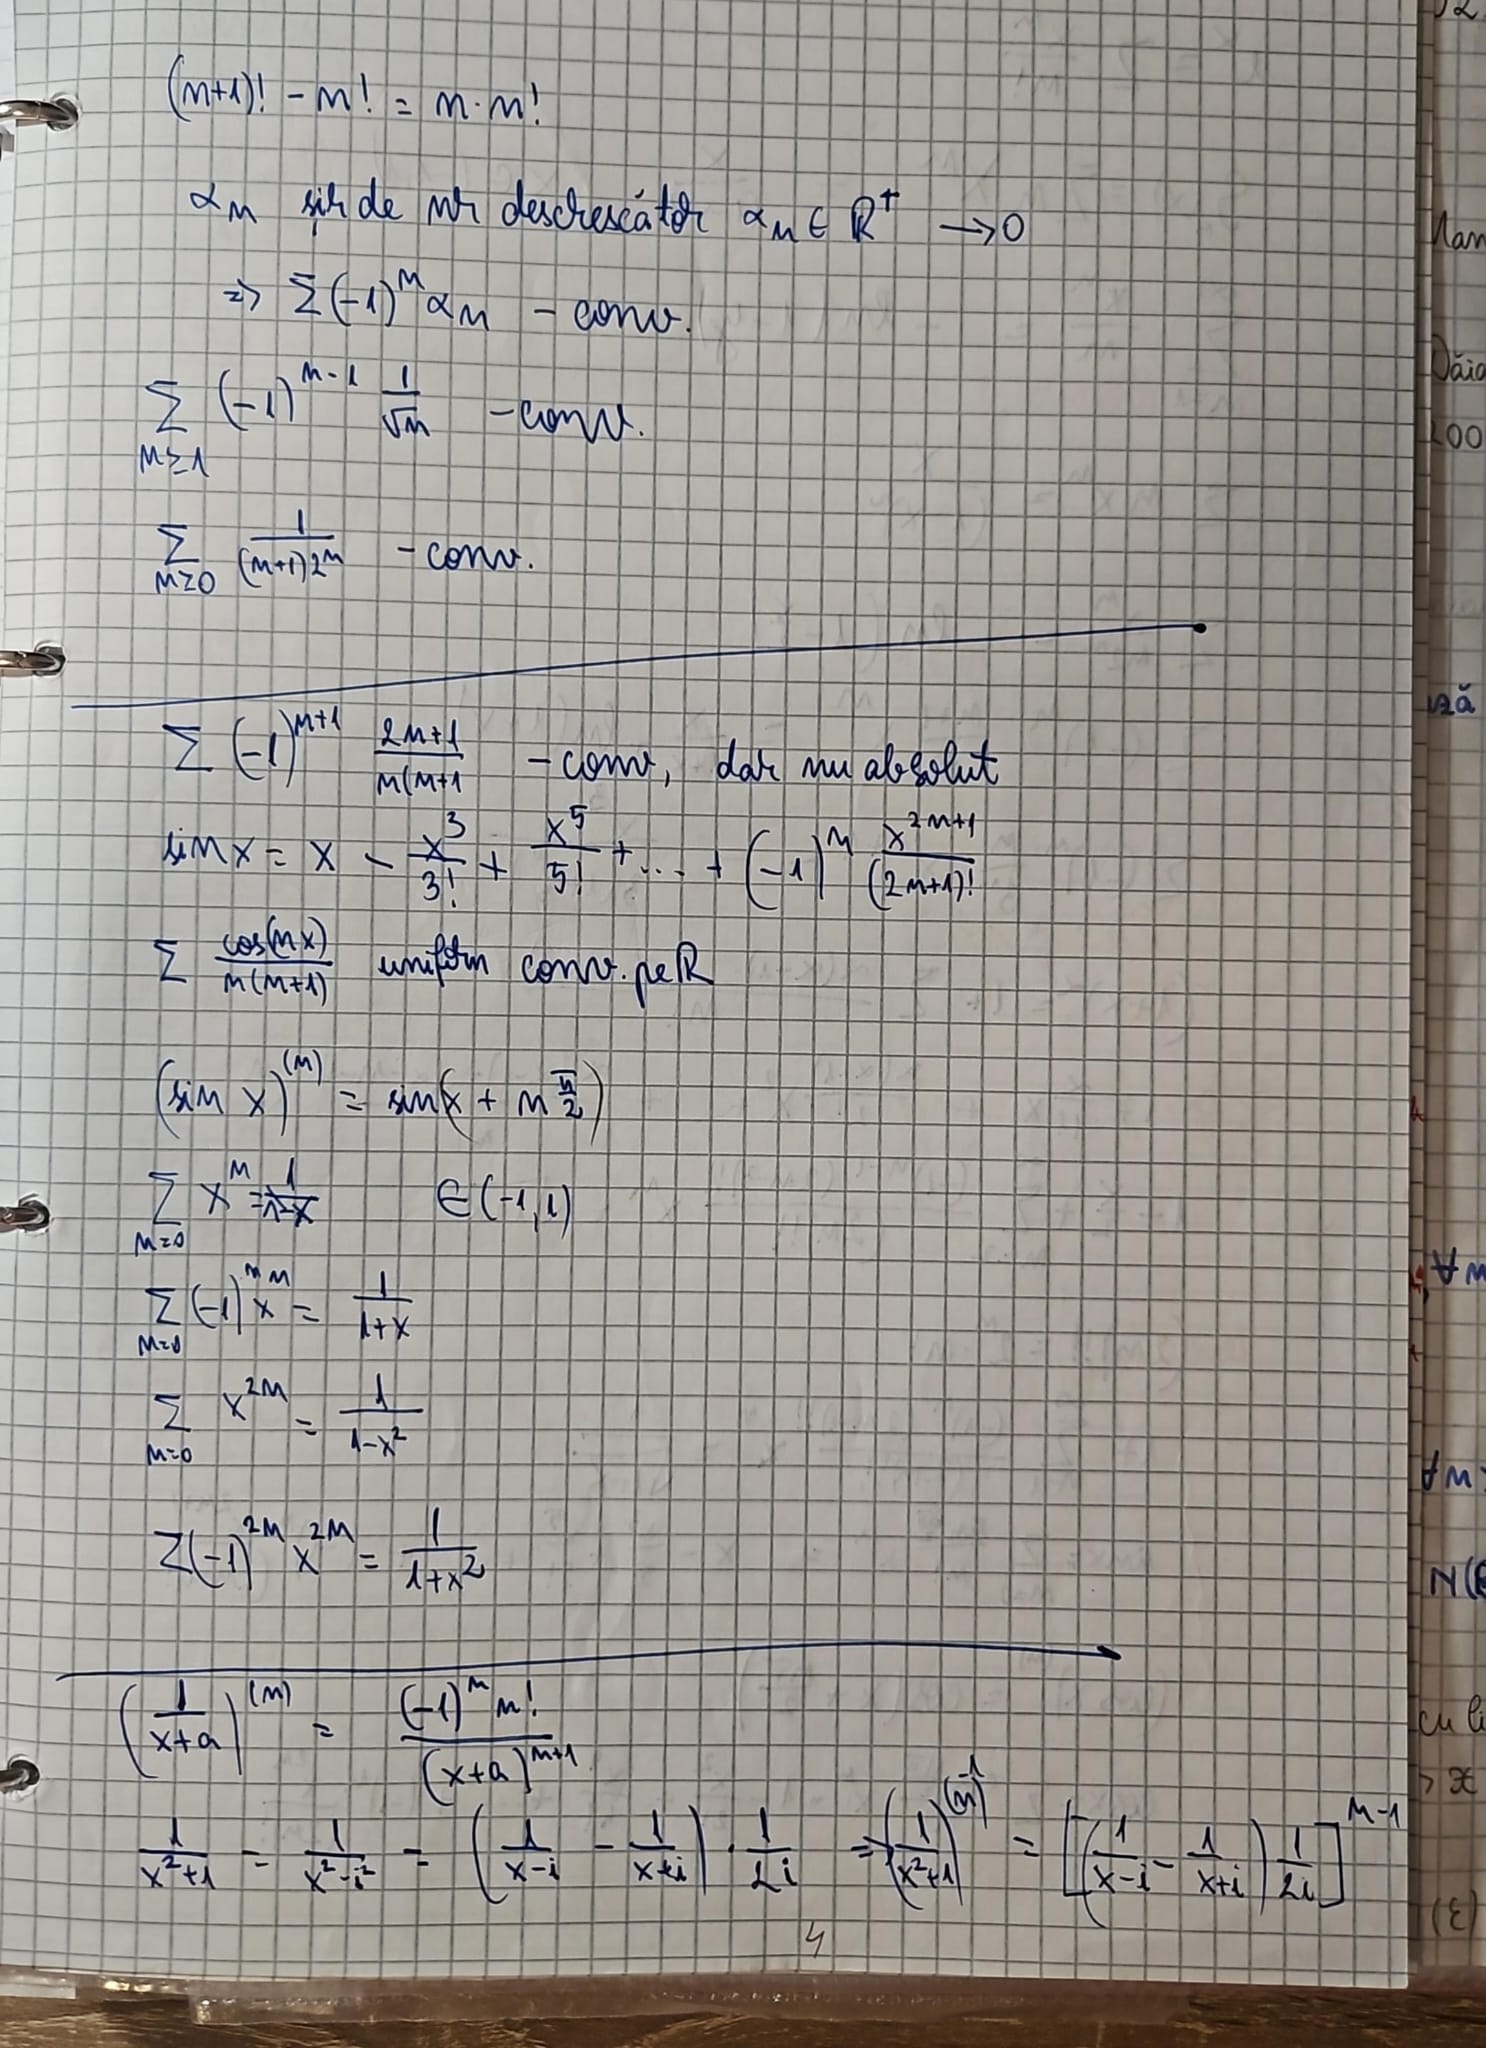 (n+1)! - n! = n·n!
αn șir de nr descrescător αn ∈ R⁺ → 0
=> Σ(-1)ⁿ αn - conv.
Σ_{n≥1} (-1)^{n-1} 1/√n - conv.
Σ_{n≥0} 1/((n+1)2ⁿ) - conv.
Σ (-1)^{n+1} (2n+1)/(n(n+1) - conv, dar nu absolut
sin x = x - x³/3! + x⁵/5! + ... + (-1)ⁿ x^{2n+1}/(2n+1)!
Σ cos(nx)/(n(n+1)) uniform conv. pe R
(sin x)^{(n)} = sin(x + n π/2)
Σ_{n=0} xⁿ = 1/(1-x) ∈ (-1,1)
Σ_{n=0} (-1)ⁿ xⁿ = 1/(1+x)
Σ_{n=0} x^{2n} = 1/(1-x²)
Σ(-1)^{2n} x^{2n} = 1/(1+x²)
(1/(x+a))^{(n)} = (-1)ⁿ n!/(x+a)^{n+1}
1/(x²+1) = 1/(x²-i²) = (1/(x-i) - 1/(x+i)) · 1/2i => (1/(x²+1))^{(n-1)} = [(1/(x-i) - 1/(x+i)) 1/2i]^{n-1}
4